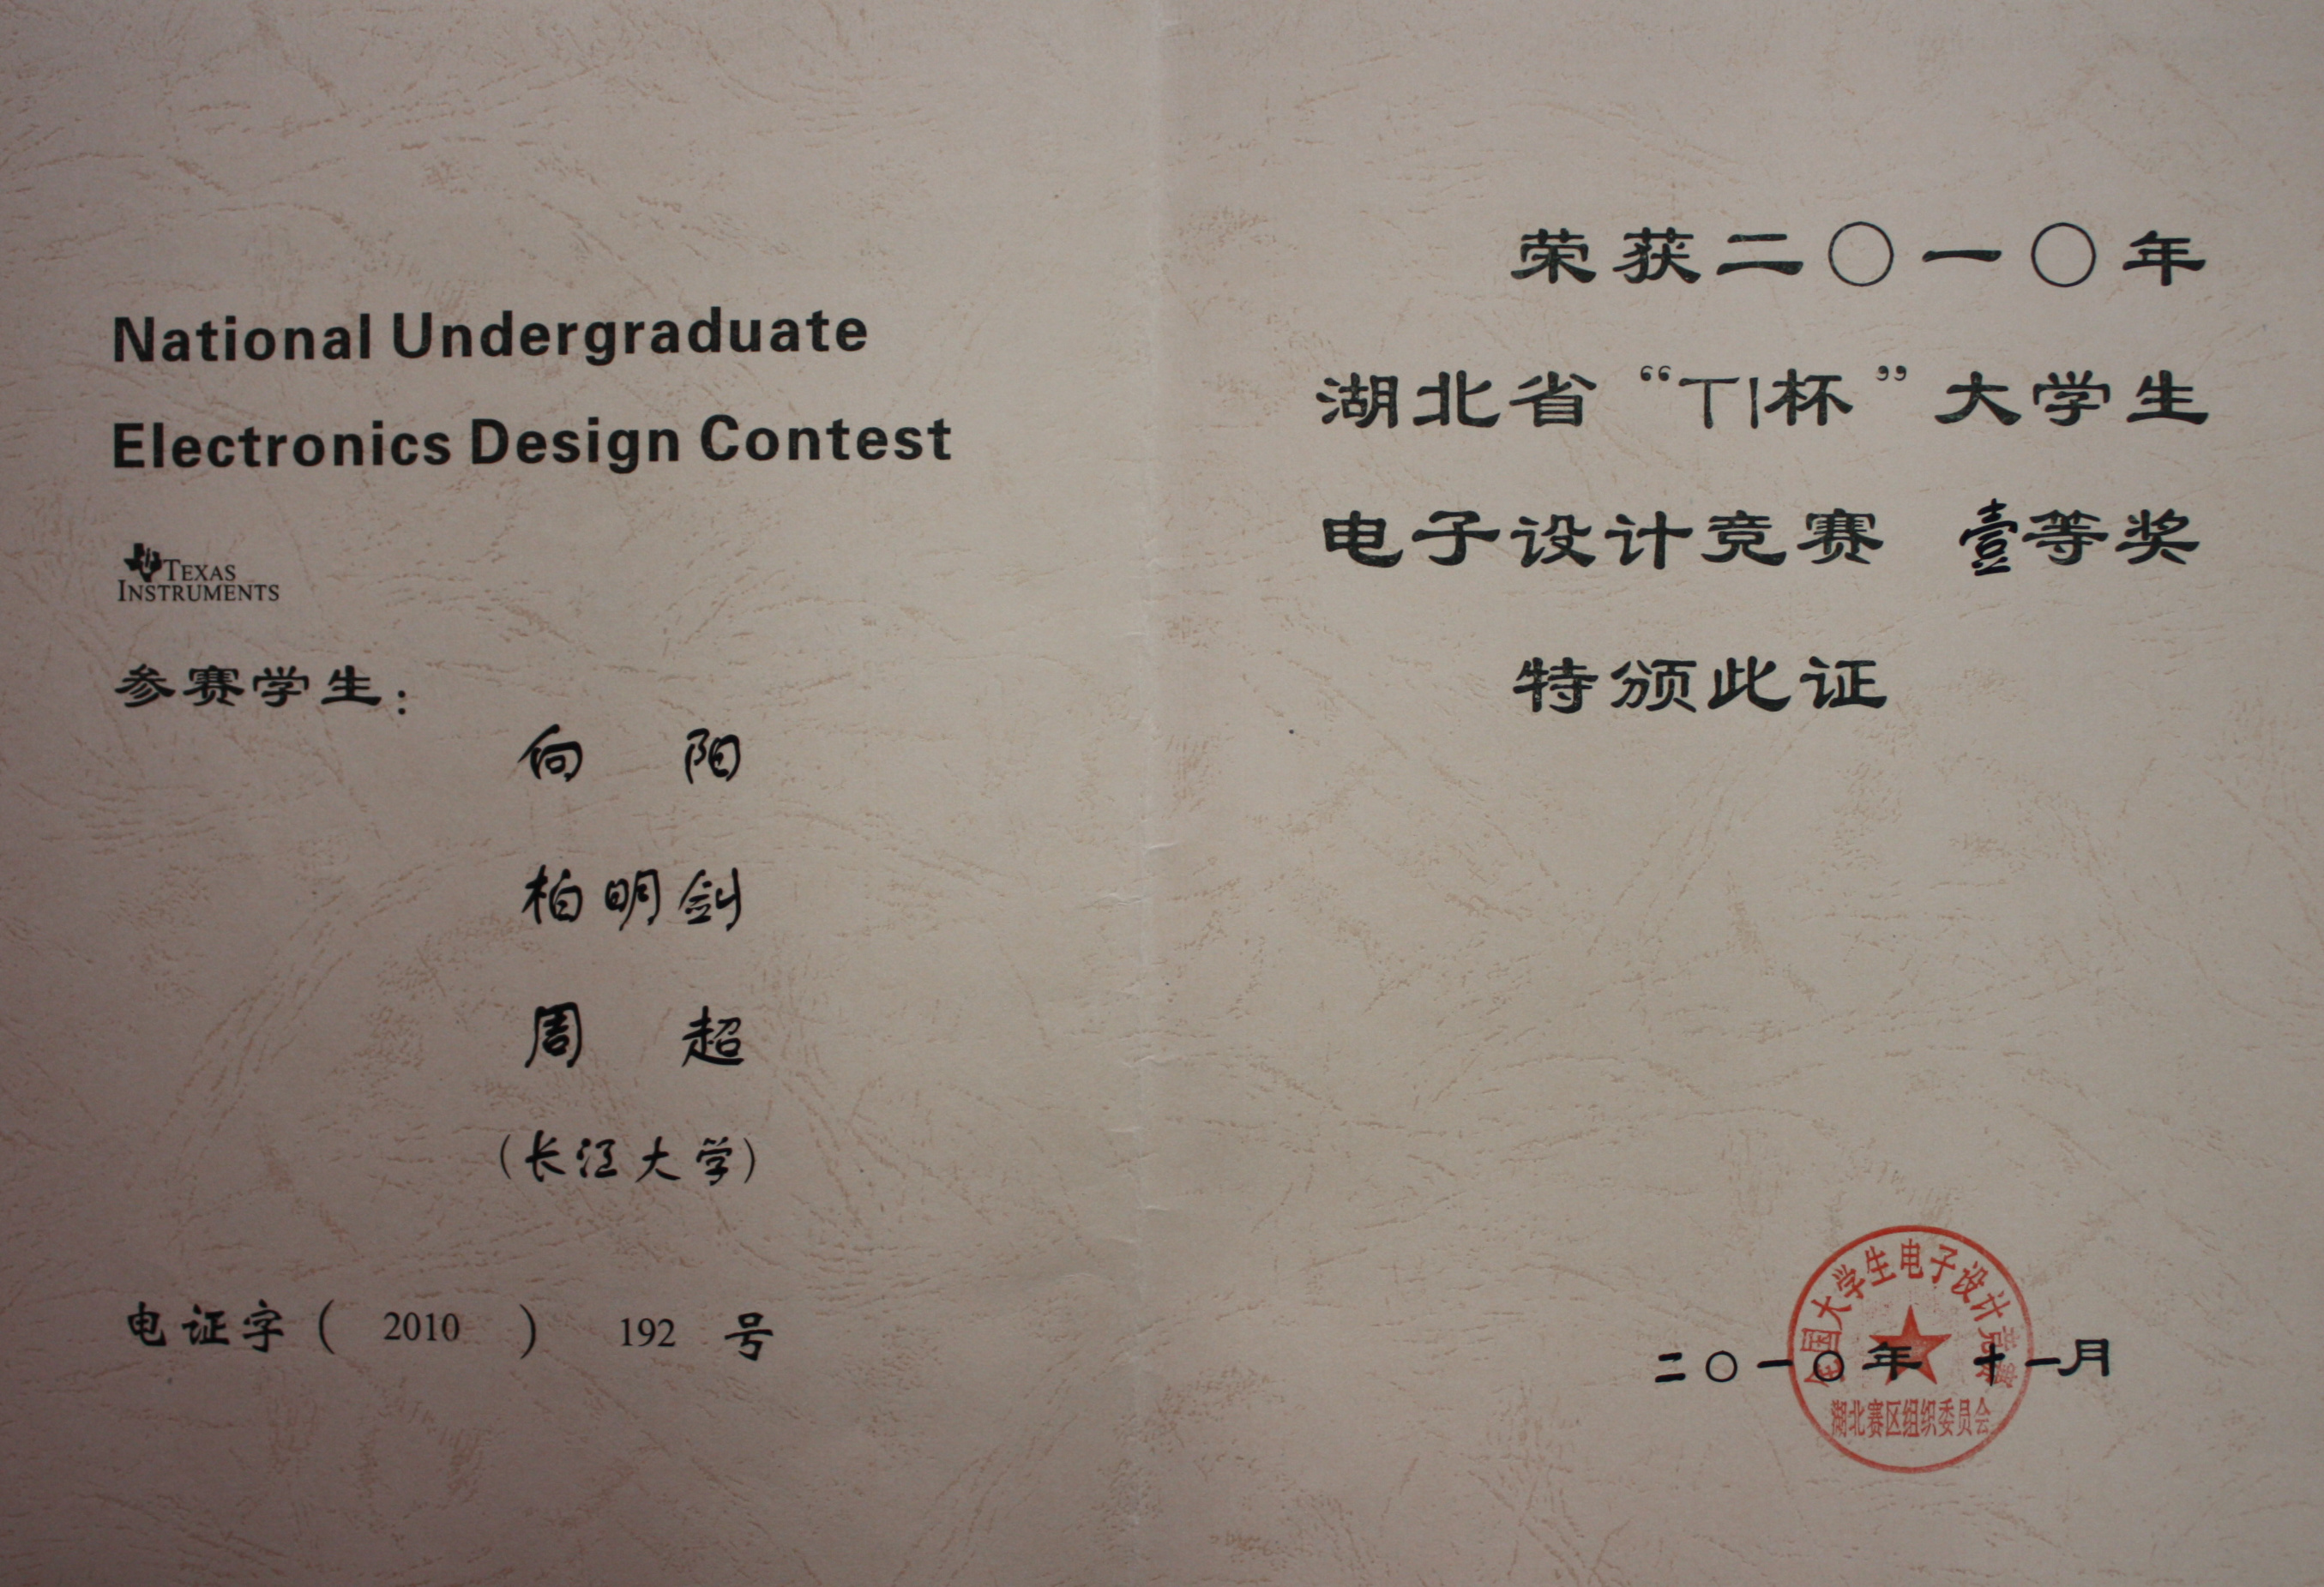 National Undergraduate
Electronics Design Contest
TEXAS
INSTRUMENTS
参赛学生：
向 阳
柏明剑
周 超
(长江大学)
电证字( 2010 ) 192 号
荣获二〇一〇年
湖北省“TI杯”大学生
电子设计竞赛 壹等奖
特颁此证
全国大学生电子设计竞赛
二〇一〇年 十一月
湖北赛区组织委员会